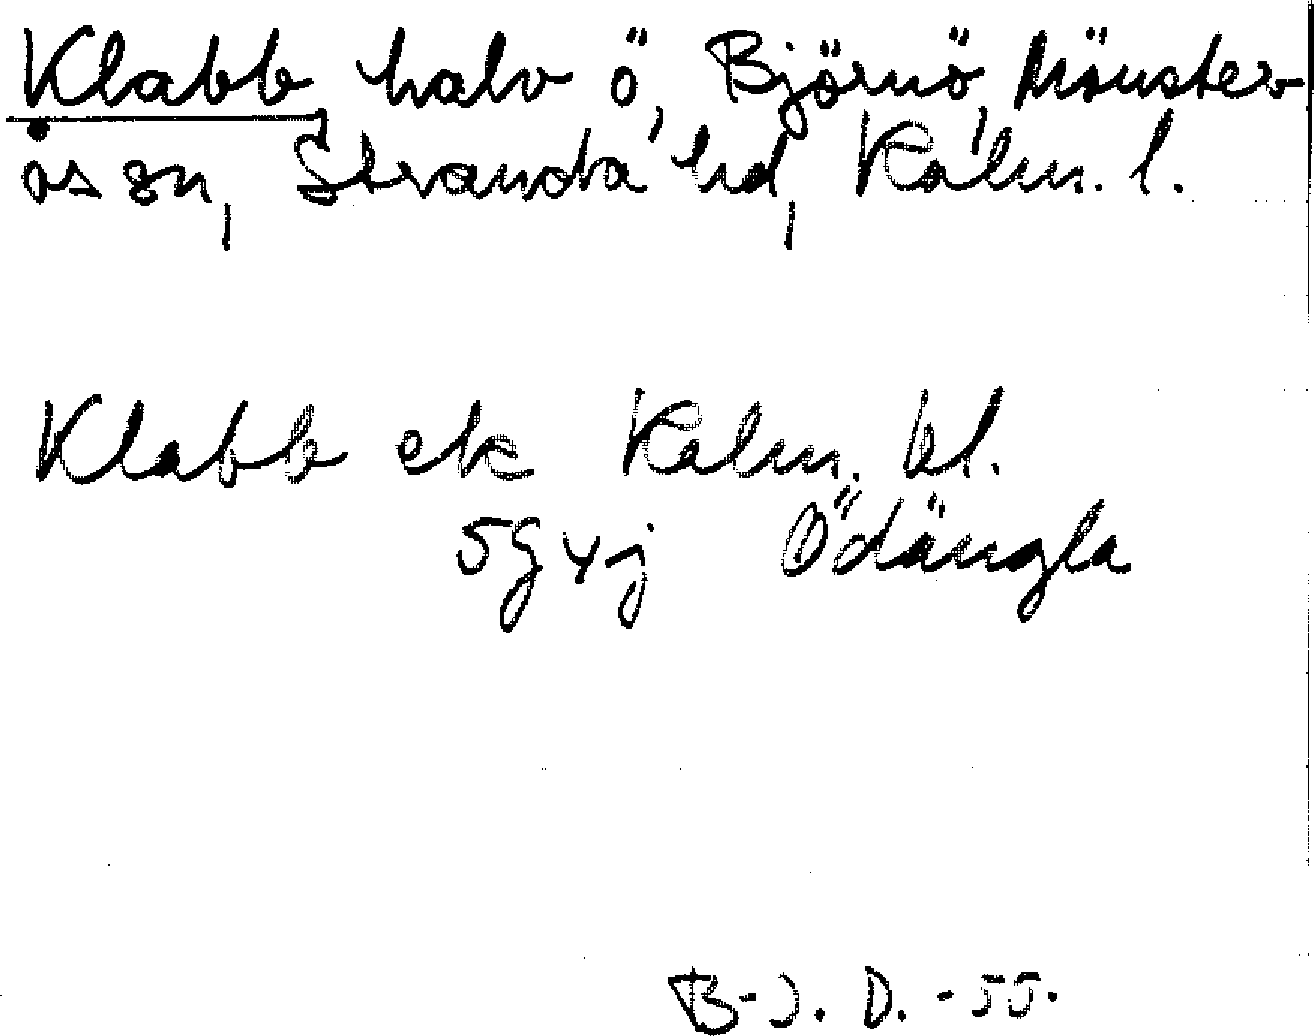 Klabb, halv ö, Björnö, Mönster
ås sn, Stranda hd, Kalm. l.
Klabb ek Kalm. bl.
5g4j Ödängla
B-J. D. -55.